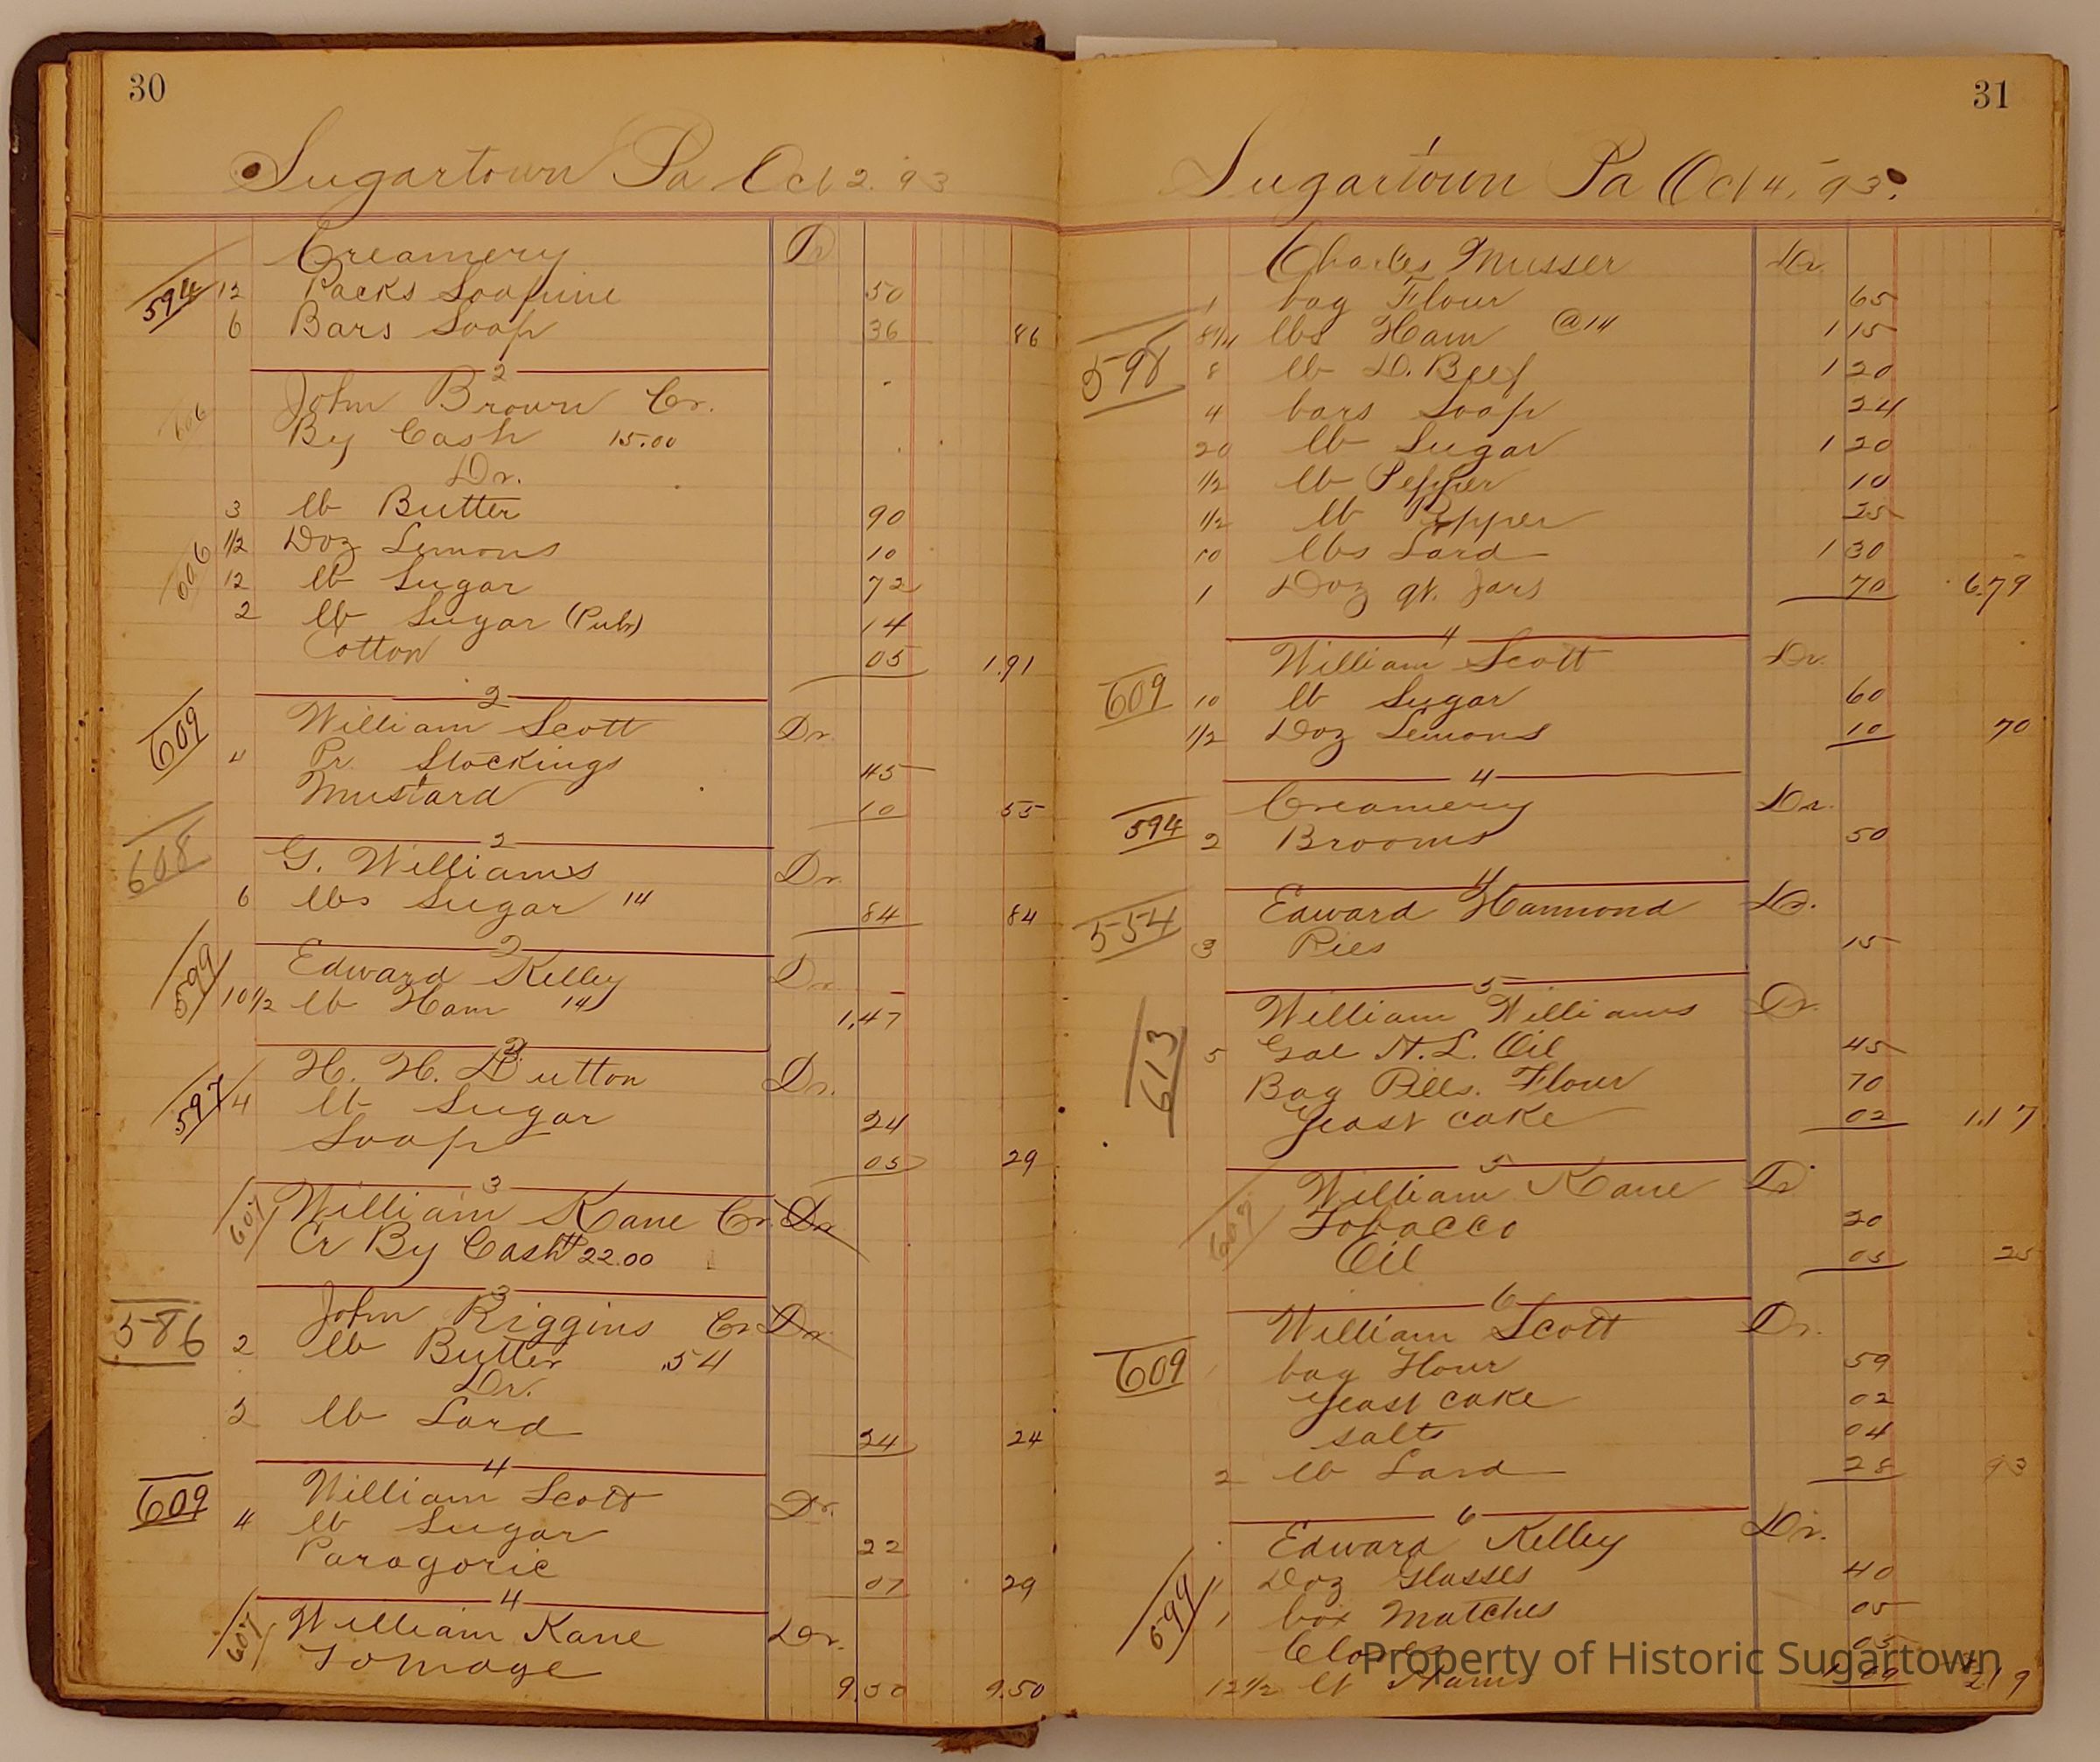 30
Sugartown Pa Oct 2. 93
Creamery Dr
594 12 Packs Soapine 50
6 Bars Soap 36 86
2
606 John Brown Cr.
By Cash 15.00
Dr.
3 lb Butter 90
606 1/2 Doz Lemons 10
12 lb Sugar 72
2 lb Sugar (Pulv) 14
Cotton 05 1.91
2
609 William Scott Dr.
4 Pr. Stockings 45
Mustard 10 55
2
608 G. Williams Dr.
6 lbs Sugar 14 84 84
2
599 Edward Kelley Dr
10 1/2 lb Ham 14 1.47
2
H. H. Button Dr.
597 4 lb Sugar 24
Soap 05 29
3
607 William Kane Cr. Dr
Cr By Cash 22.00
3
586 John Riggins Cr Dr.
2 lb Butter .54
Dr.
2 lb Lard 24 24
4
609 William Scott Dr.
4 lb Sugar 22
Paragoric 07 29
4
607 William Kane Dr.
9.50 9.50
31
Sugartown Pa Oct 4, 93.
Charles Musser Dr.
1 bag Flour 65
598 8 1/4 lbs Ham @14 1 15
8 lb D. Beef 1 20
4 bars Soap 24
20 lb Sugar 1 20
1/2 lb Pepper 10
1/2 lb Pepper 25
10 lbs Lard 1 30
1 Doz qt. Jars 70 6.79
4
William Scott Dr.
609 10 lb Sugar 60
1/2 Doz Lemons 10 70
4
Creamery Dr.
594 2 Brooms 50
4
554 Edward Hammond Dr.
3 Pies 15
5
613 William Williams Dr.
5 Gal H. L. Oil 45
Bag Pills. Flour 70
Yeast cake 02 1.17
5
607 William Kane Dr
Tobacco 20
Oil 05 25
6
William Scott Dr.
609 1 bag Flour 59
Yeast cake 02
Salts 04
2 lb Lard 28 93
6
Edward Kelley Dr.
599 1 Doz Glasses 40
1 box Matches 05
Cloves 05
12 1/2 lb Ham 2.19
Property of Historic Sugartown